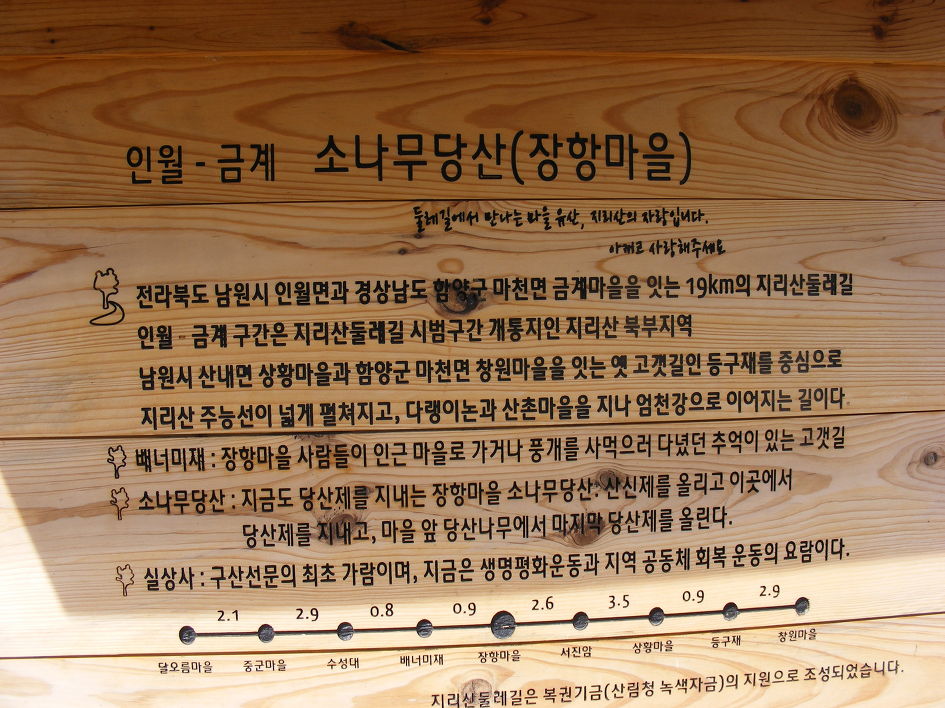 인월 - 금계 소나무당산(장항마을)
둘레길에서 만나는 마을 유산, 지리산의 자랑입니다.
아끼고 사랑해주세요
전라북도 남원시 인월면과 경상남도 함양군 마천면 금계마을을 잇는 19km의 지리산둘레길
인월 - 금계 구간은 지리산둘레길 시범구간 개통지인 지리산 북부지역
남원시 산내면 상황마을과 함양군 마천면 창원마을을 잇는 옛 고갯길인 등구재를 중심으로
지리산 주능선이 넓게 펼쳐지고, 다랭이논과 산촌마을을 지나 엄천강으로 이어지는 길이다.
배너미재 : 장항마을 사람들이 인근 마을로 가거나 풍개를 사먹으러 다녔던 추억이 있는 고갯길
소나무당산 : 지금도 당산제를 지내는 장항마을 소나무당산. 산신제를 올리고 이곳에서
당산제를 지내고, 마을 앞 당산나무에서 마지막 당산제를 올린다.
실상사 : 구산선문의 최초 가람이며, 지금은 생명평화운동과 지역 공동체 회복 운동의 요람이다.
2.1 2.9 0.8 0.9 2.6 3.5 0.9 2.9
달오름마을 중군마을 수성대 배너미재 장항마을 서진암 상황마을 등구재 창원마을
지리산둘레길은 복권기금(산림청 녹색자금)의 지원으로 조성되었습니다.